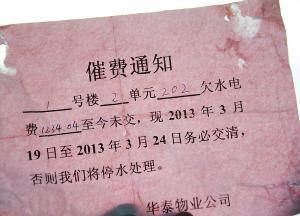 催费通知
1 号楼 2 单元 202 欠水电
费1234.04至今未交，现 2013 年 3 月
19 日至 2013 年 3 月 24 日务必交清，
否则我们将停水处理。
华泰物业公司